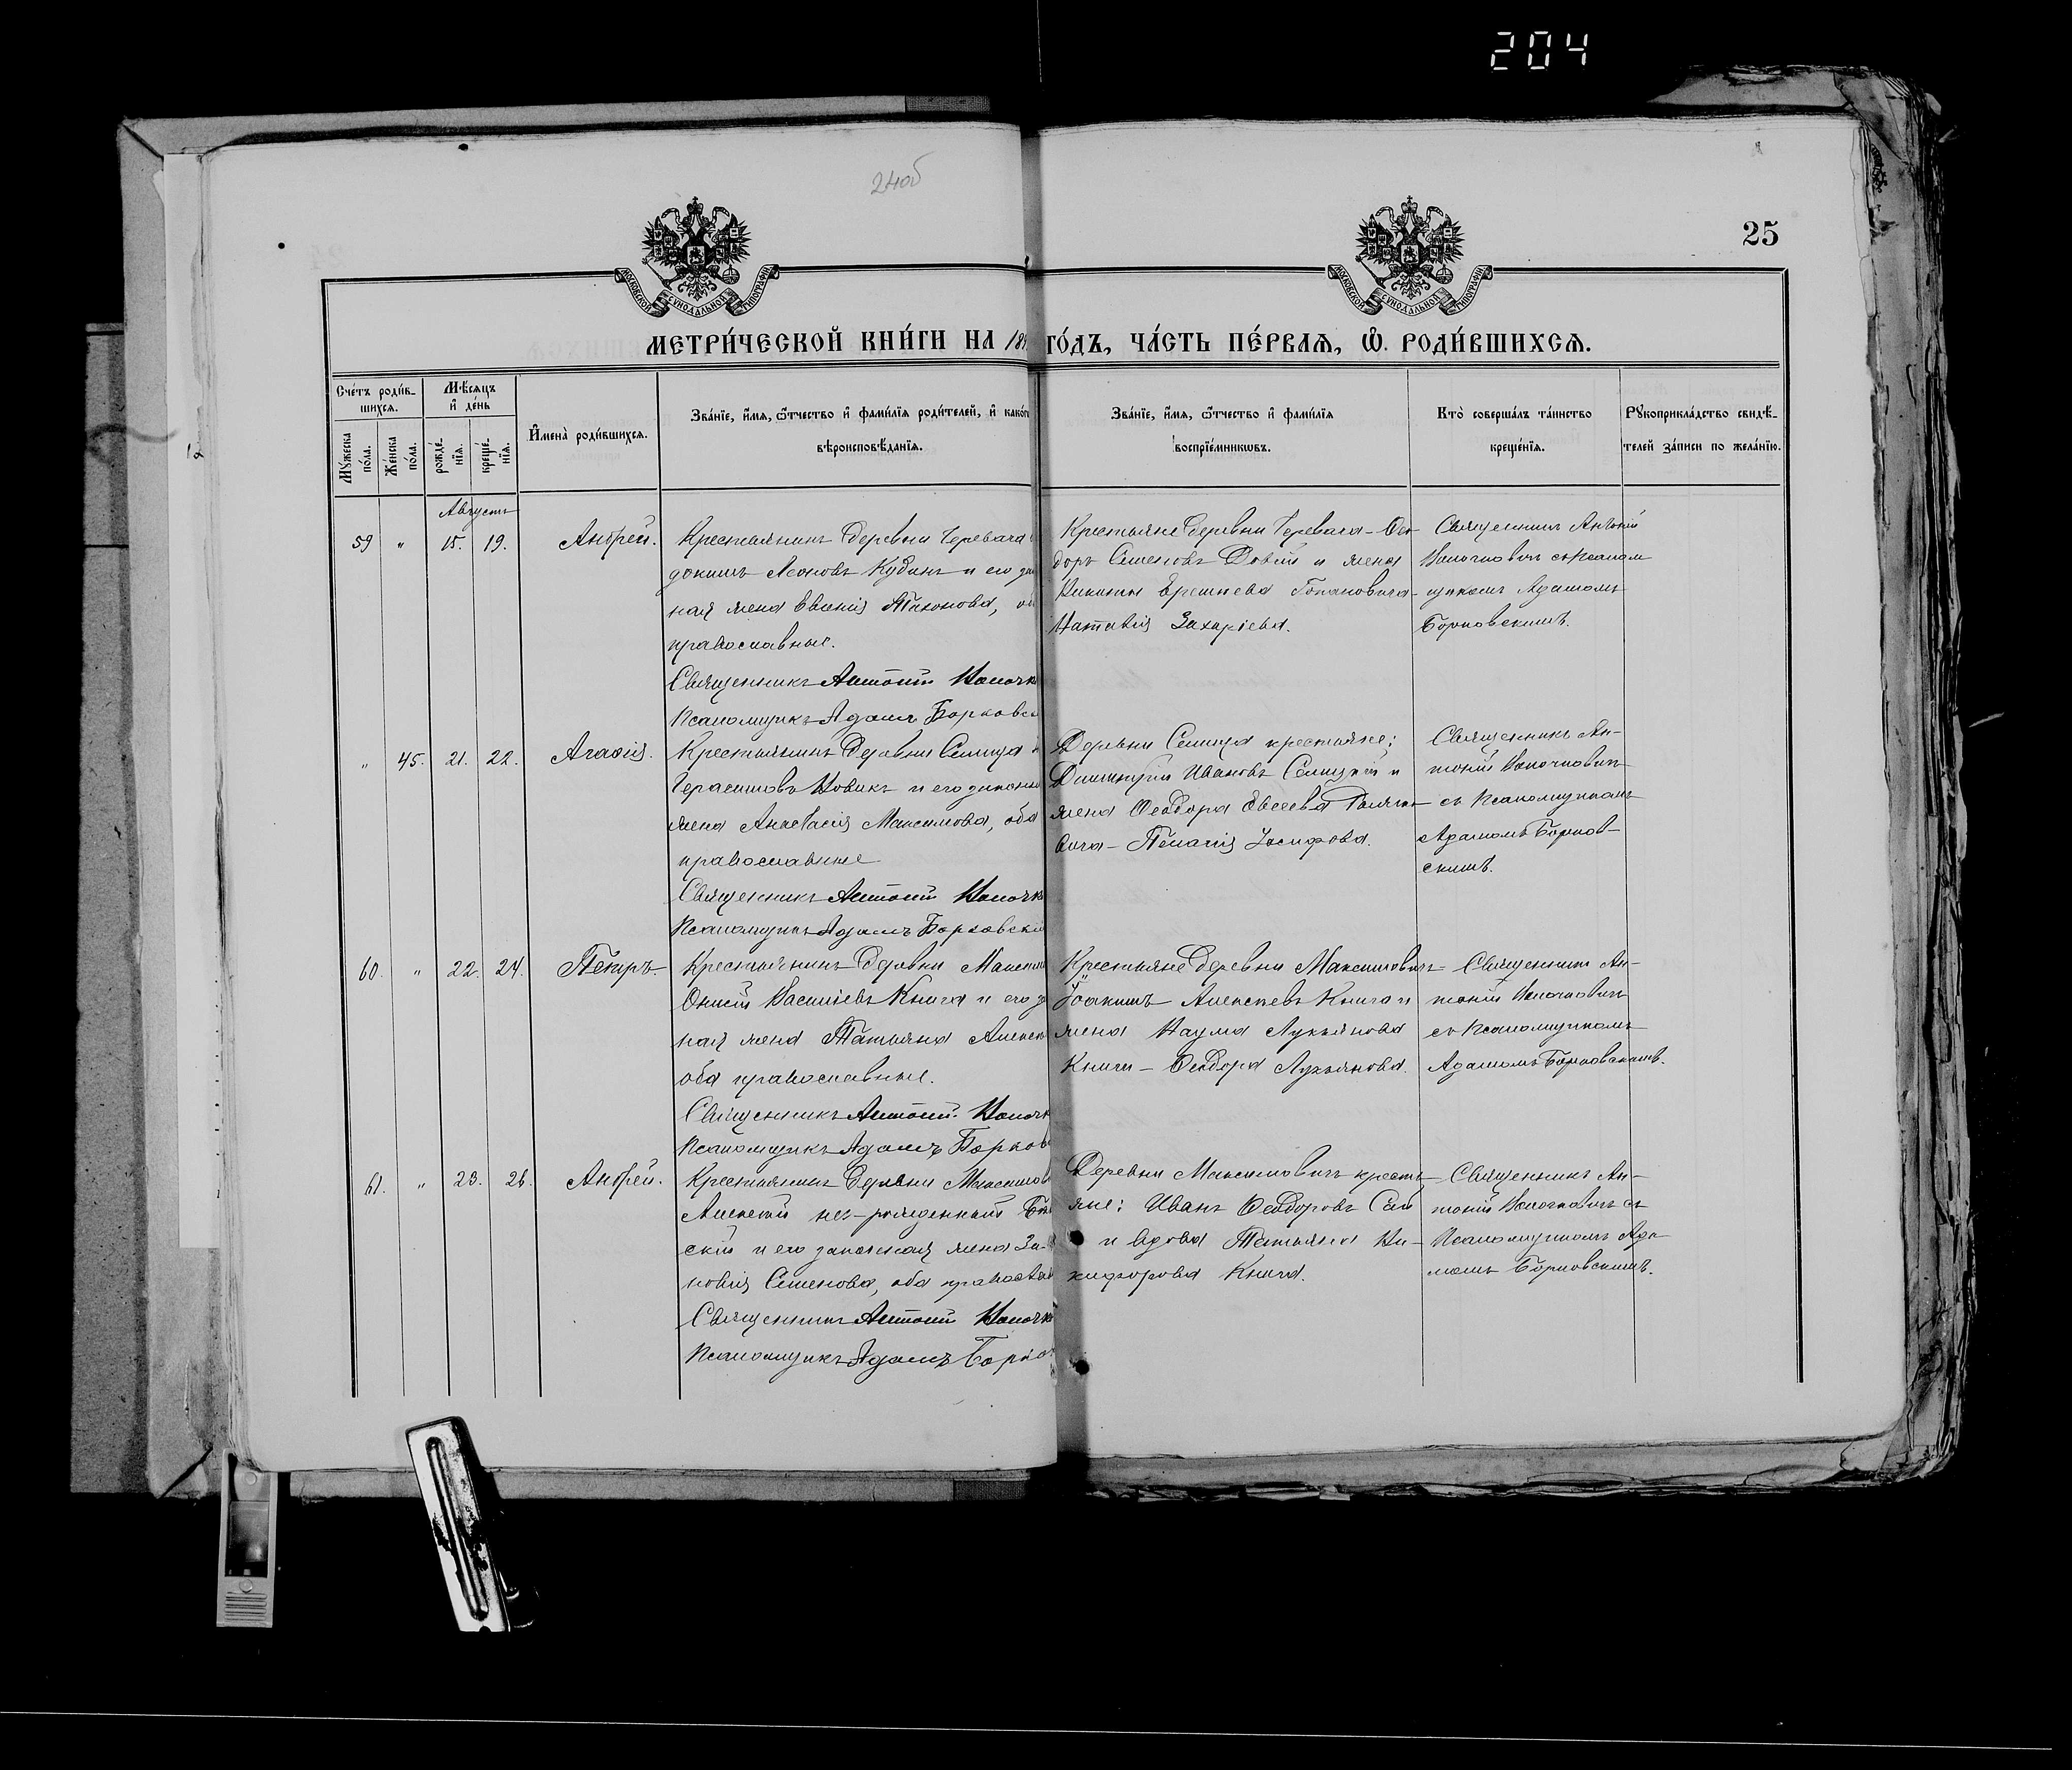 204
24об
25
МОСКОВСКОЙ СѴНОДАЛЬНОЙ ТИПОГРАФІИ
МОСКОВСКОЙ СѴНОДАЛЬНОЙ ТИПОГРАФІИ
МЕТРИ́ЧЕСКОЙ КНИ́ГИ НА 189 ГО́ДЪ, ЧА́СТЬ ПЕ́РВАЯ, Ѽ РОДИ́ВШИХСЯ.
Счéтъ роди́в-
шихся.
Мѣ́сяцъ
и҆ де́нь
Мꙋ́жеска
по́ла.
Же́нска
по́ла.
рожде́-
нїя.
креще́-
нїя.
И҆мена̀ роди́вшихся.
Зва́нїе, и҆́мя, ѻ҆́тчество и҆ фами́лїя роди́телей, и҆ како́гѡ
вѣроисповѣ́данїя.
Зва́нїе, и҆́мя, ѻ҆́тчество и҆ фами́лїя
воспрїе́мникѡвъ.
Кто̀ соверша́лъ та́инство
креще́нїя.
Рꙋкоприкла́дство свидѣ́-
телей за́писи по жела́нїю.
Августъ
59 " 15. 19. Андрей.
Крестьянинъ деревни Черевача
докимъ Леоновъ Кубикъ и его за
ная жена Евгенія Тихонова, об
православные.
Священникъ Антоній
Псаломщикъ Адамъ Борковс
Крестьяне деревни Черевача - Ѳео-
доръ Семеновъ Довгій и жена
Никиты
Наталія Захаріева.
Священникъ Антоній
съ псалом
щикомъ Адамомъ
Борковскимъ.
" 45. 21. 22. Агафія.
Крестьянинъ деревни Селища
Герасимовъ Новикъ и его законн
жена Анастасія Максимова, оба
православные
Священникъ Антоній
Псаломщикъ Адамъ Борковскі
Деревни Селища крестьяне:
Димитрій Ивановъ Селицкій и
жена Ѳеодора Евсеева
вича - Пелагія Іосифова.
Священникъ Ан-
тоній
съ псаломщикомъ
Адамомъ Борков-
скимъ.
60. " 22. 24. Петръ.
Крестьянинъ деревни Максимо
Онисій Васильевъ Книга и его за
ная жена Татьяна Алексѣ
оба православные.
Священникъ Антоній
Псаломщикъ Адамъ Борков
Крестьяне деревни Максимовичъ
Іоакимъ Алексѣевъ Книга и
жена Наума Лукьянова
Книги - Ѳеодора Лукьянова.
Священникъ Ан-
тоній
съ псаломщикомъ
Адамомъ Борковскимъ.
61. " 23. 26. Андрей.
Крестьянинъ деревни Максимов
Алексѣй
скій и его законная жена Зи-
новія Семенова, оба православ
Священникъ Антоній
Псаломщикъ Адамъ Борков
Деревни Максимовичъ кресть
яне: Иванъ Ѳеодоровъ
и вдова Татьяна Ни-
кифорова Книга.
Священникъ Ан-
тоній съ
псаломщикомъ Ада-
момъ Борковскимъ.